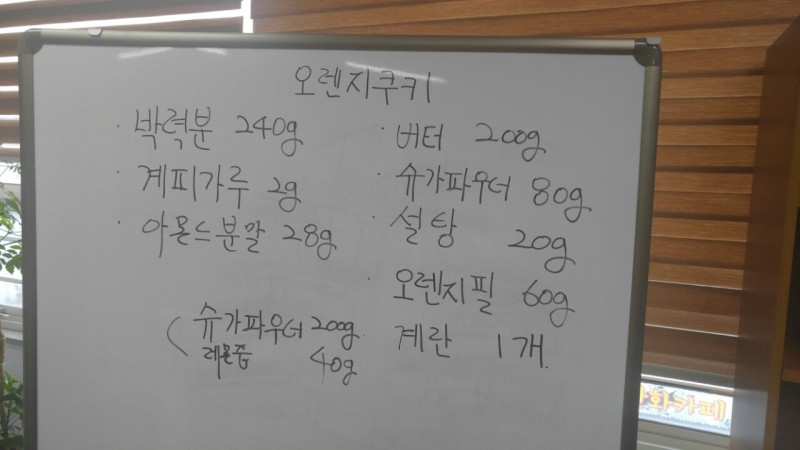 오렌지쿠키
· 박력분 240g
· 계피가루 2g
· 아몬드분말 28g
· 버터 200g
· 슈가파우더 80g
· 설탕 20g
· 오렌지필 60g
계란 1개.
( 슈가파우더 200g.
레몬즙 40g
화카페